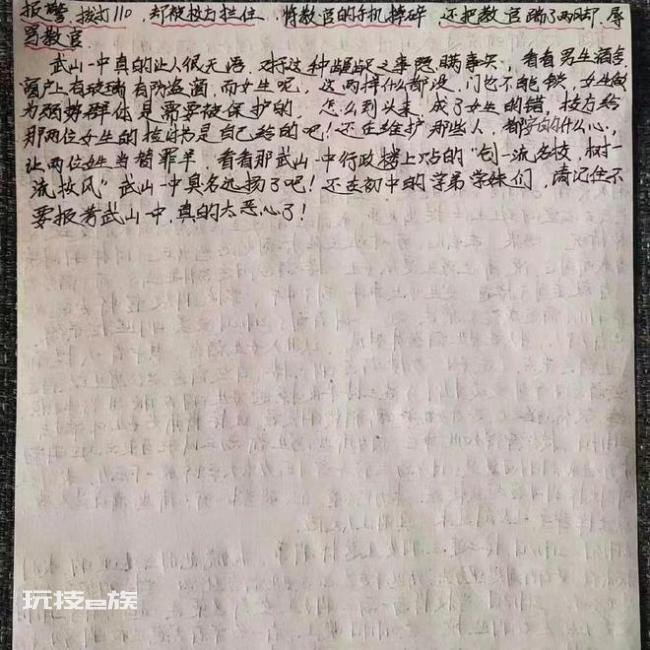 报警，拨打110，却被校方拦住，将教官的手机摔碎，还把教官踹了两脚，辱
骂教官
武山一中真的让人很无语，对待这种龌龊之事隐瞒事实，看看男生宿舍
窗户上有玻璃有防盗窗，而女生呢，这两样什么都没，门也不能锁，女生做
为弱势群体是需要被保护的，怎么到头来，成了女生的错，校方给
那两位女生的检讨书是自己给的吧！还在维护那些人，都安的什么心，
让两位女生当替罪羊，看看那武山一中行政楼上站的“创一流名校，树一
流校风”武山一中臭名远扬了吧！还在初中的学弟学妹们，请记住不
要报考武山一中，真的太恶心了！
玩技e族